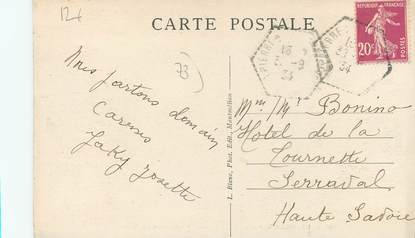 12€
CARTE POSTALE
73
RÉPUBLIQUE FRANÇAISE
20c
18
-9
34
34
Nous partons demain
Caresses
Jaky Josette
L. Blanc, Phot. Edit., Montmélian
Mme/Mr Bonino
Hotel de la
Tournette
Serraval
Haute Savoie